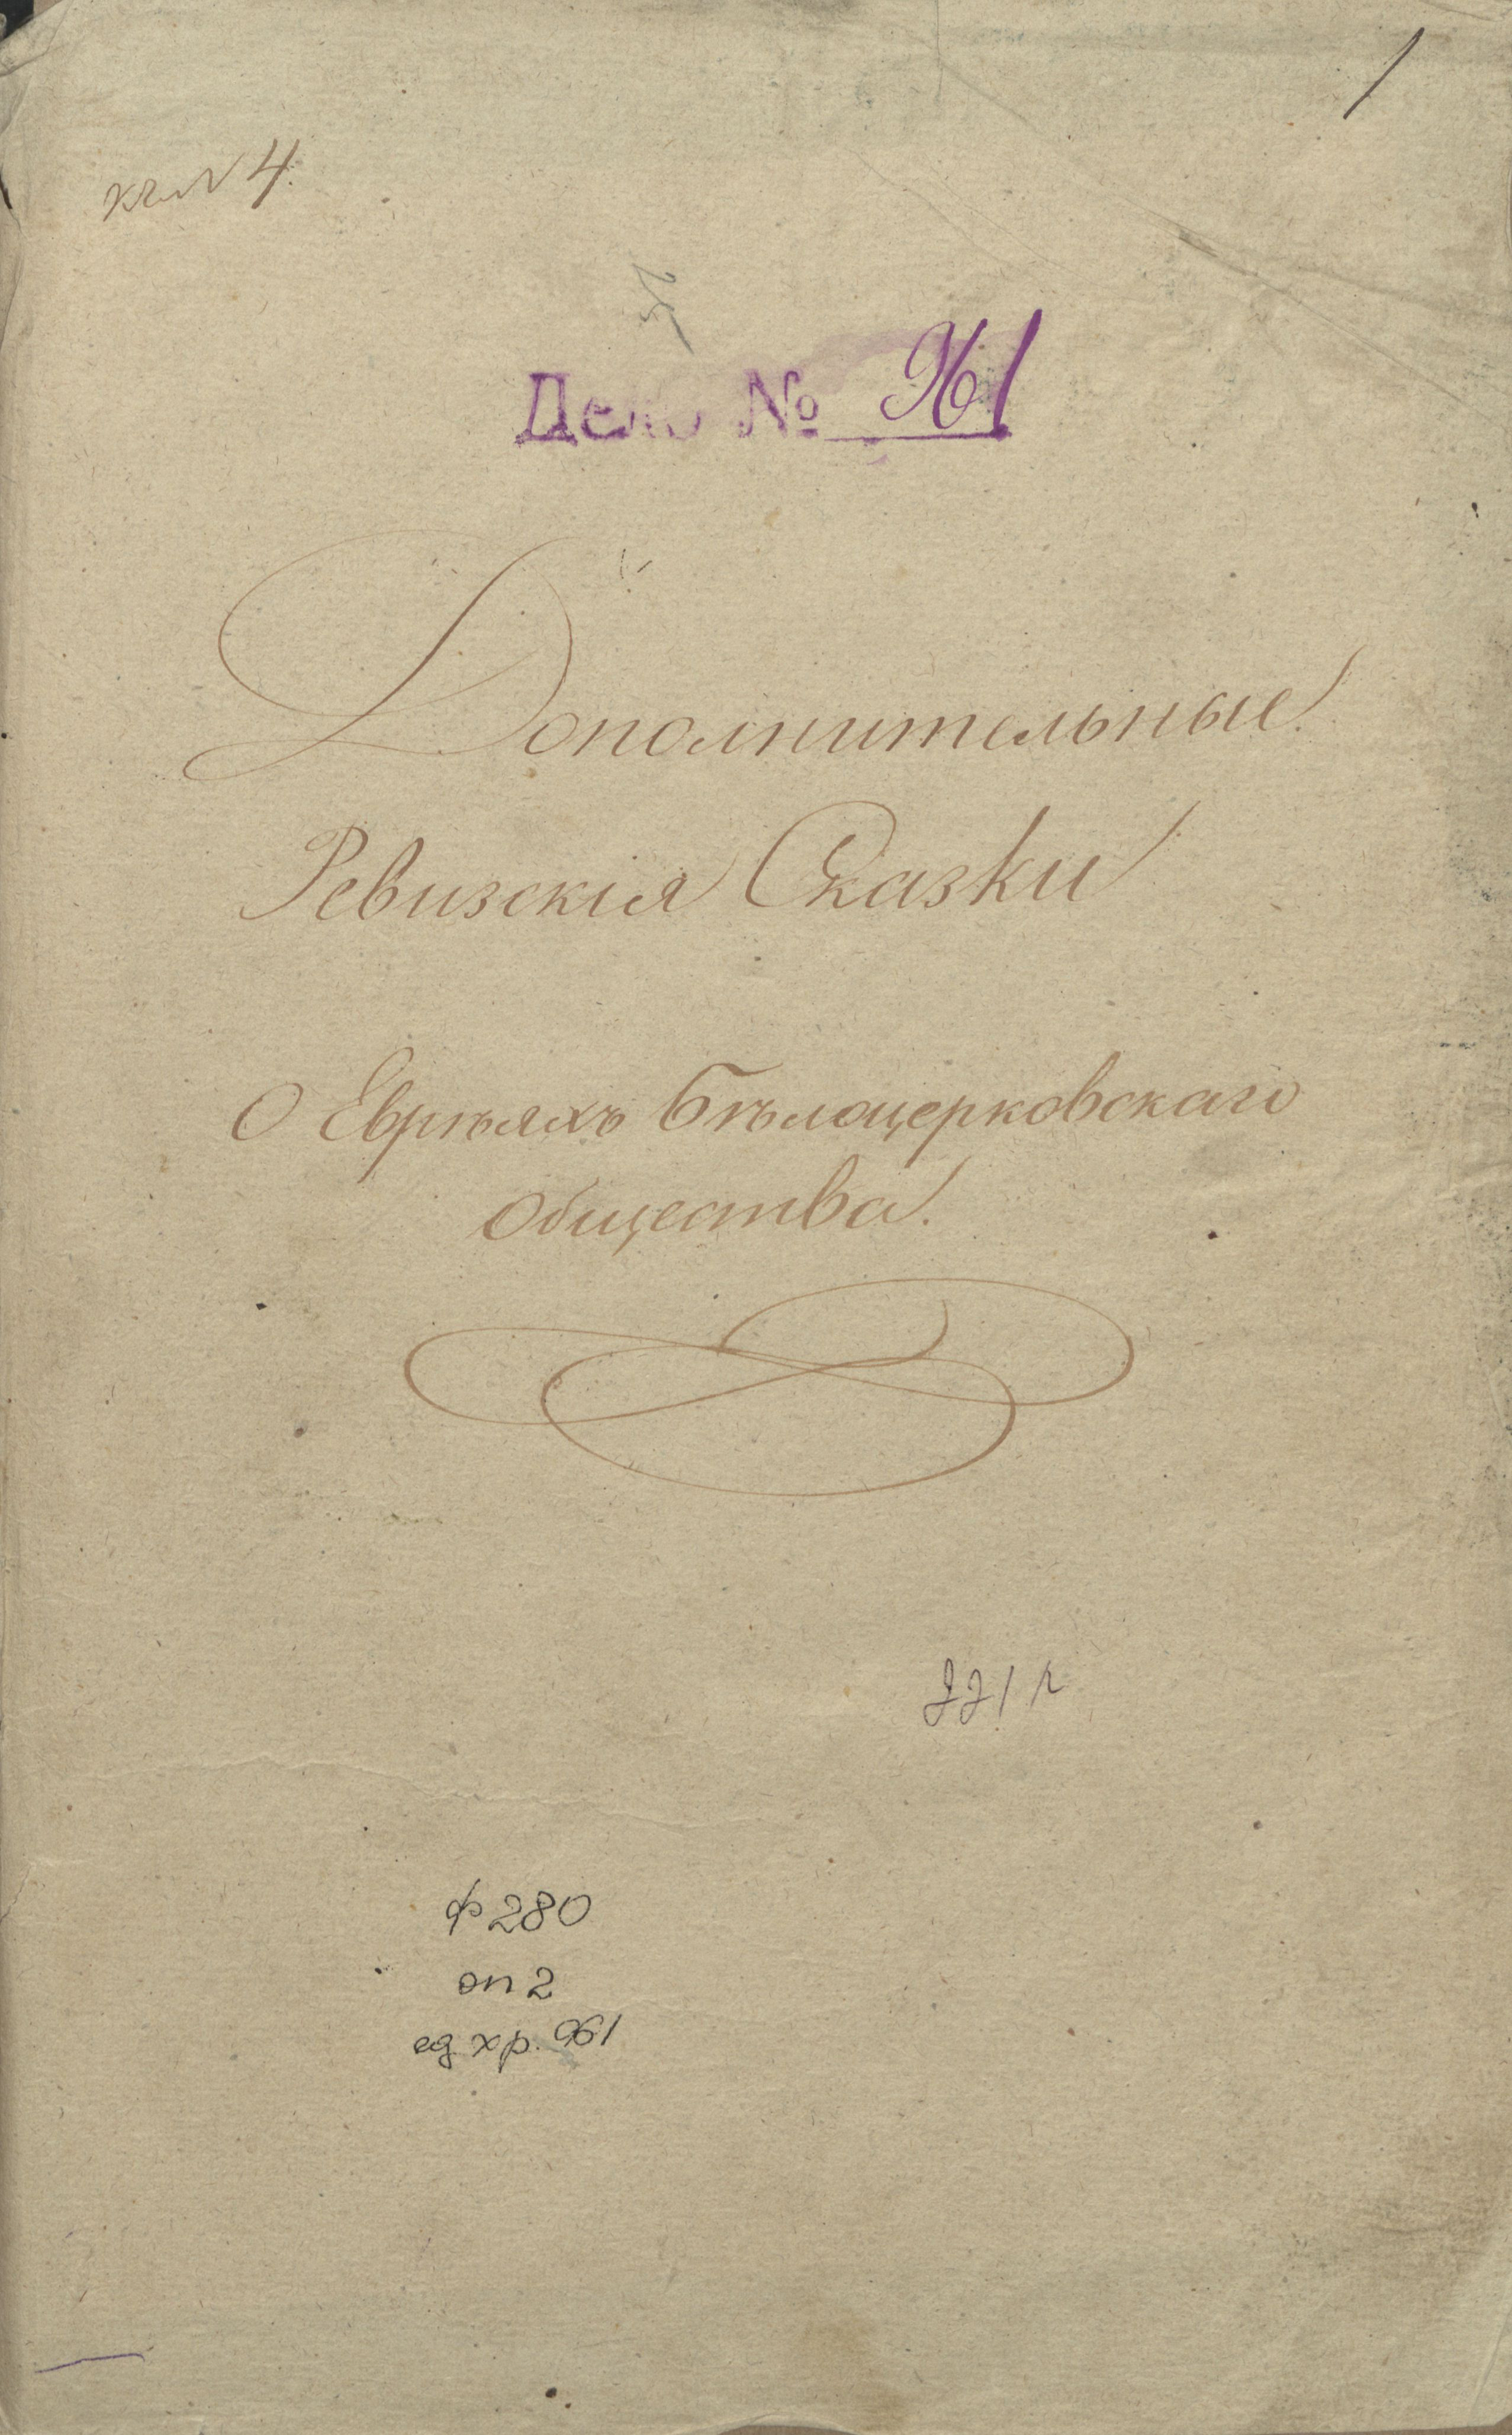 1
кн N 4.
Дело № 961
Дополнительные
Ревизскія Сказки
О Евреяхъ Бѣлоцерковскаго
Общества.
ф 280
оп 2
ед хр. 961